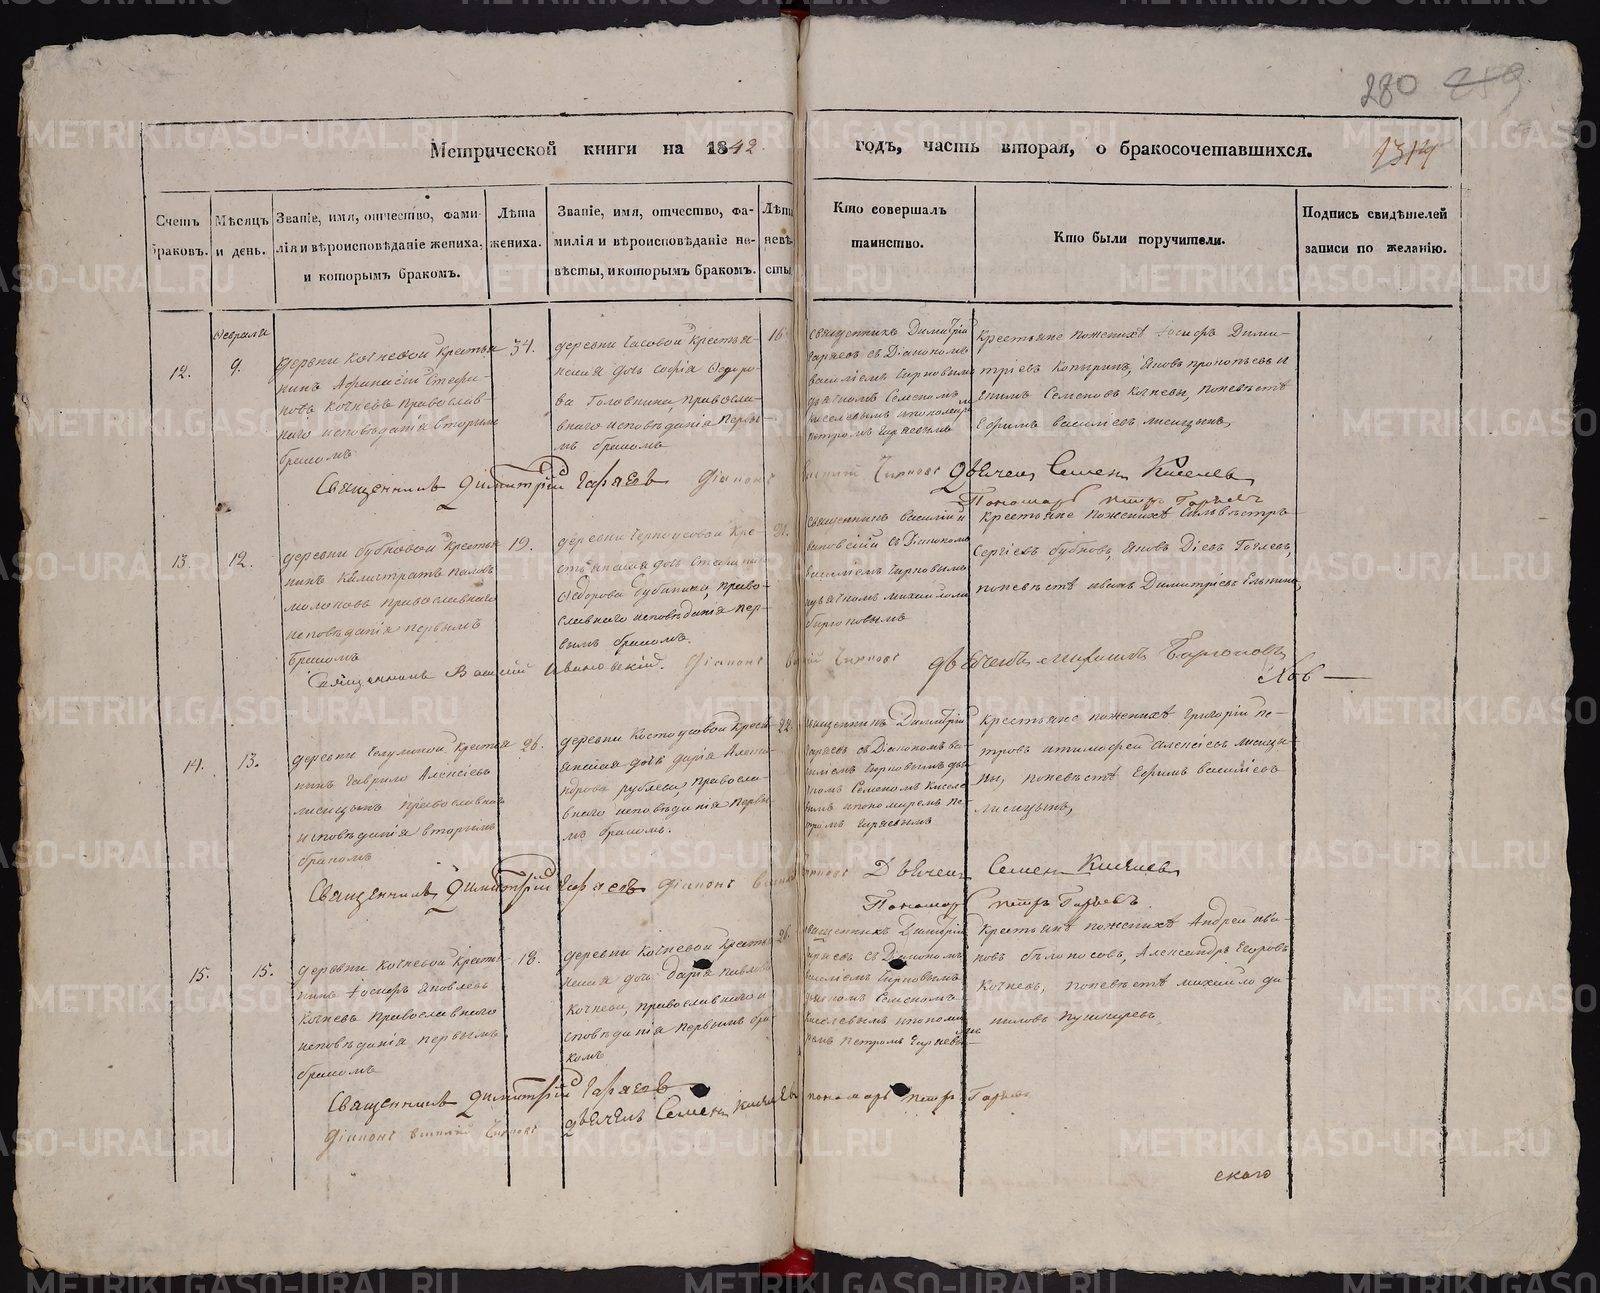 280
1314
Метрической книги на 1842 годъ, часть вторая, о бракосочетавшихся.
Счетъ браковъ.
Мѣсяцъ и день.
Званіе, имя, отчество, фами-
лія и вѣроисповѣданіе жениха,
и которымъ бракомъ.
Лѣта
жениха.
Званіе, имя, отчество, фа-
милія и вѣроисповѣданіе не-
вѣсты, и которымъ бракомъ.
Лѣта
невѣ
сты
Кто совершалъ
таинство.
Кто были поручители.
Подпись свидѣтелей
записи по желанію.
Февраля
12.
9.
деревни Кочневой крестья
нинъ Афанасій Стефа-
новъ Кочневъ православ-
наго исповѣданія вторымъ
бракомъ
34.
деревни Часовой крестья
нская дочь Софія Ѳедоро-
ва Головкина, правосла-
внаго исповѣданія первы-
мъ бракомъ
16
священникъ Димитрій
Гаряевъ съ Діакономъ
василіемъ Чирковымъ
дьячкомъ Семеномъ
Киселевымъ и пономаремъ
петромъ Гаряевымъ
крестьяне по женихѣ Іосифъ Дими-
тріевъ Копыринъ, Яковъ прокопьевъ и
Якимъ Семеновъ Кочневы, по невѣстѣ
Ефимъ василіевъ лисицынъ,
Священникъ Димитрій Гаряевъ Діаконъ василій Чирковъ Дьячекъ Семенъ Киселевъ
Пономарь петръ Гаряевъ
13.
12.
деревни Бубновой крестья
нинъ Калистратъ павловъ
молоковъ православнаго
исповѣданія первымъ
бракомъ
19.
деревни Черноусовой кре-
стьянская дочь
Ѳедорова Бубнина, право-
славнаго исповѣданія пер-
вымъ бракомъ.
21.
священникъ василій И
вановскій съ Діакономъ
василіемъ Чирковымъ
и дьячкомъ михаиломъ
крестьяне по женихѣ Сильвестръ
Сергіевъ бубновъ, Яковъ Діевъ
по невѣстѣ иванъ Димитріевъ
Священникъ Василій Ивановскій. Діаконъ василій Чирковъ дьячекъ михаилъ
14.
13.
крестья
нинъ Гаврило Алексіевъ
лисицынъ православнаго
исповѣданія вторымъ
бракомъ
26.
деревни Костоусовой кресть
янская дочь дарія Алекса
ндрова рублева, правосла-
внаго исповѣданія первы
мъ бракомъ.
22.
священникъ Димитрій
Гаряевъ съ Діакономъ ва-
силіемъ Чирковымъ дья
чкомъ Семеномъ Киселе
вымъ и пономаремъ пе-
тромъ Гаряевымъ
крестьяне по женихѣ Григорій пе-
тровъ и тимофей алексіевъ лисицы-
ны, по невѣстѣ Ефимъ василіевъ
лисицынъ,
Священникъ Димитрій Гаряевъ Діаконъ василій Чирковъ Дьячекъ Семенъ Киселевъ
Пономарь петръ Гаряевъ.
15.
15.
деревни Кочневой крестья
нинъ Іосифъ Яковлевъ
Кочневъ православнаго
исповѣданія первымъ
бракомъ
18.
деревни Кочневой крестья
нская дочь дарія павлова
Кочнева, православнаго и
сповѣданія первымъ бра-
комъ
26.
священникъ Димитрій
Гаряевъ съ Діакономъ
василіемъ Чирковымъ
дьячкомъ Семеномъ
Киселевымъ и понома
ремъ петромъ Гаряевы
крестьяне по женихѣ Андрей ива-
новъ бѣлоносовъ, Александръ Егоровъ
Кочневъ, по невѣстѣ михайло да
ниловъ пушкаревъ,
Священникъ Димитрій Гаряевъ
Діаконъ василій Чирковъ дьячекъ Семенъ Киселевъ пономарь петръ Гаряевъ
скаго
METRIKI.GASO-URAL.RU